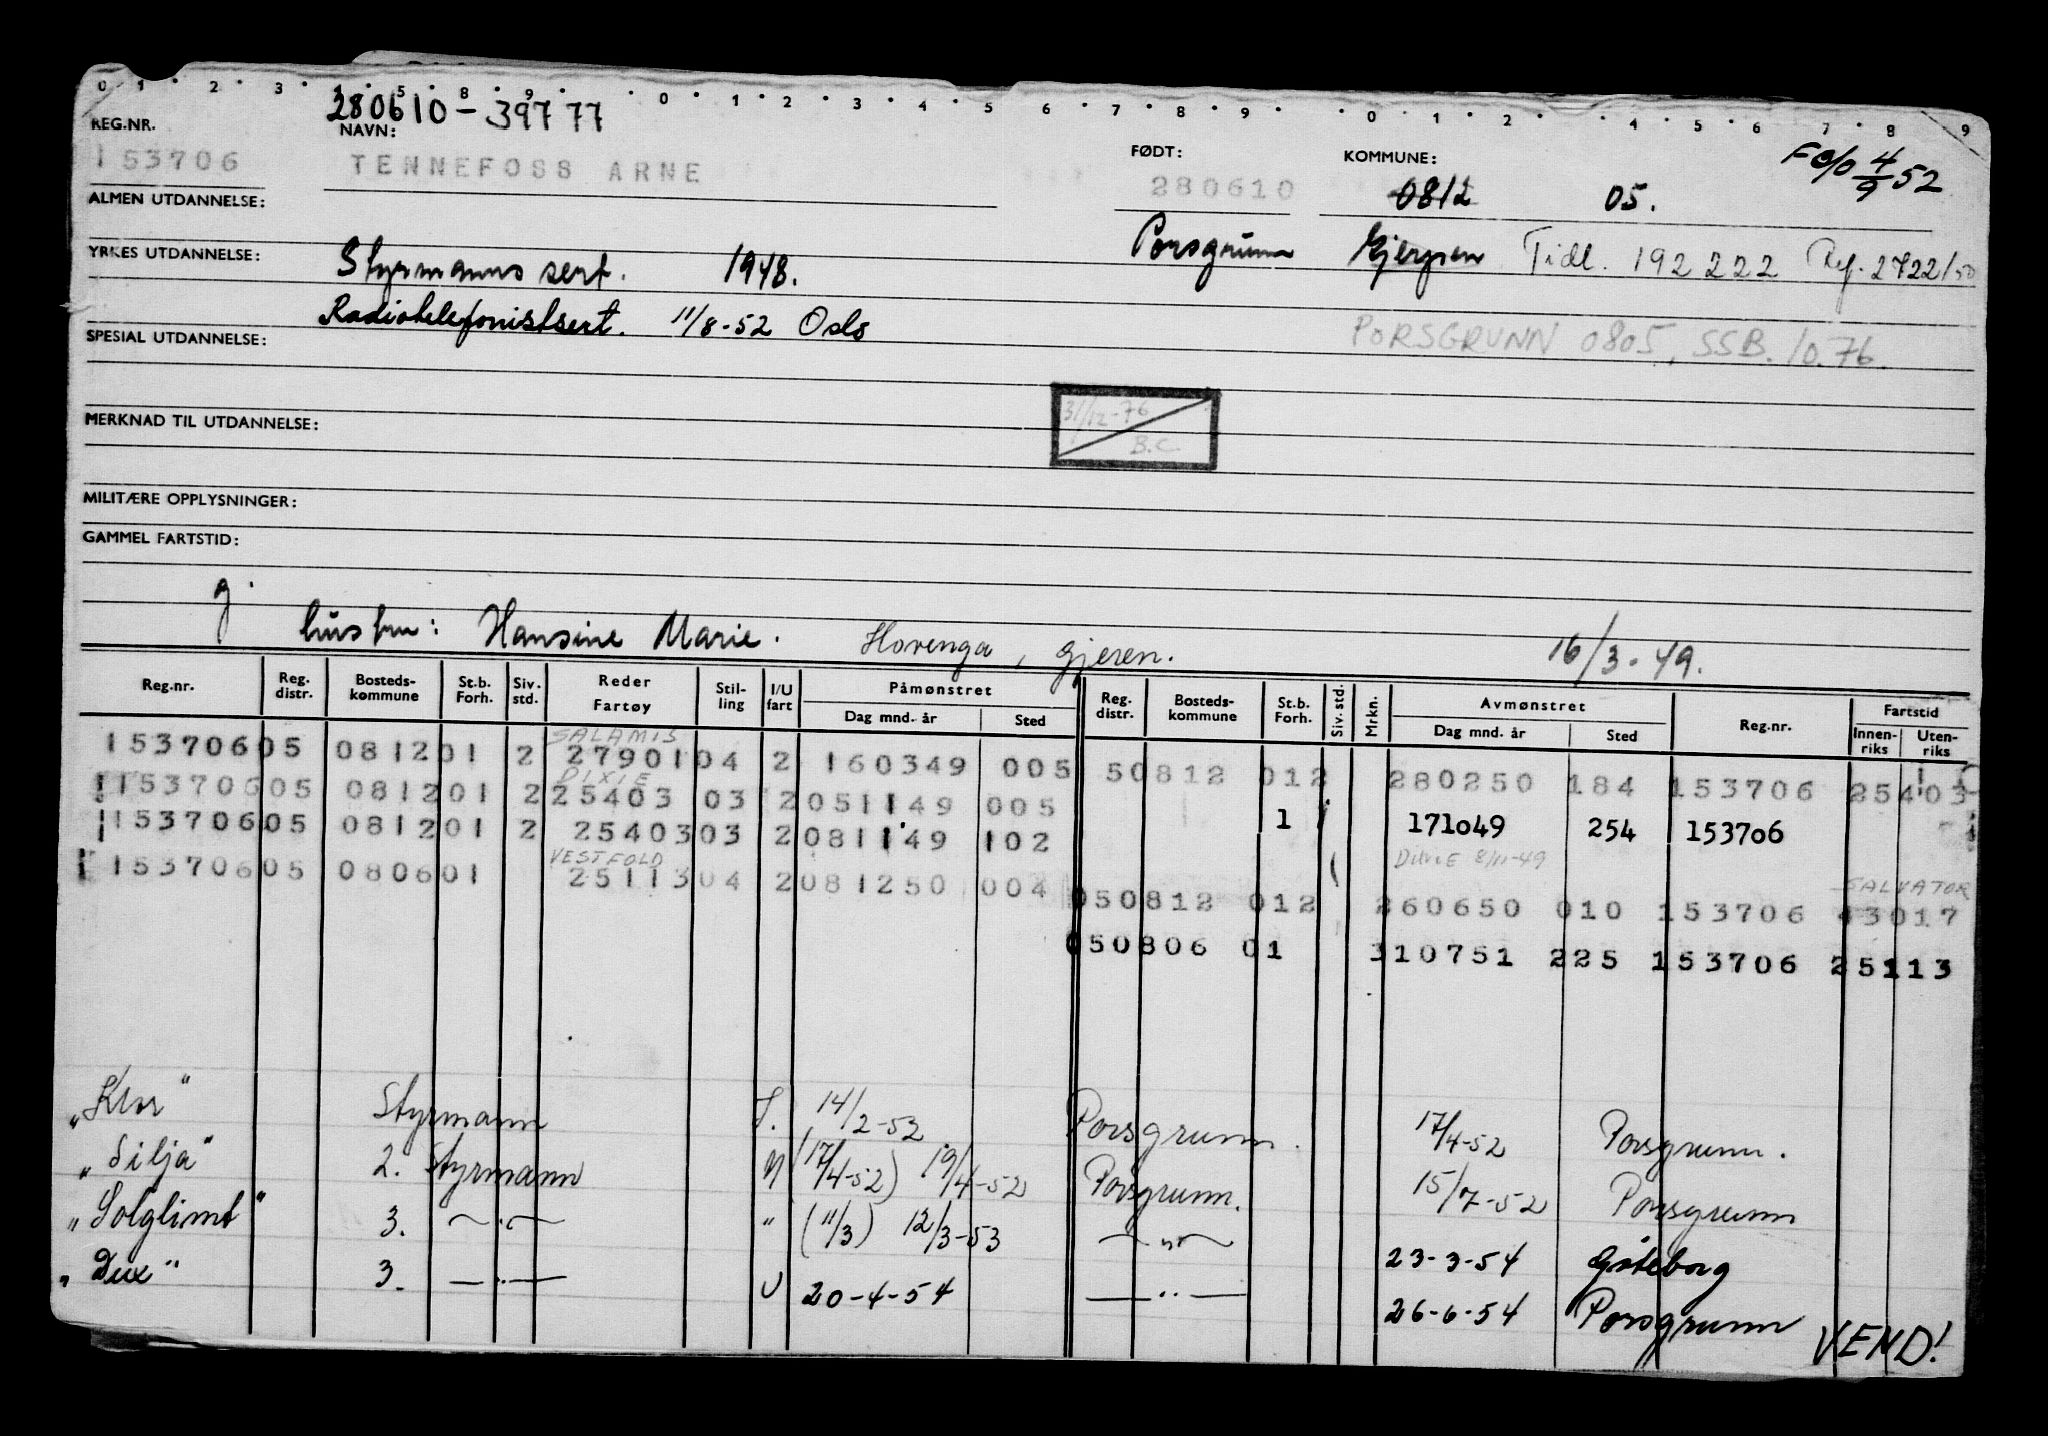 0 1 2 3 4 5 8 9 0 1 2 3 4 5 6 7 8 9 0 1 2 4 5 6 7 8 9
280610-39777
REG.NR. NAVN: FØDT: KOMMUNE: 4/9 52
153706 TENNEFOSS ARNE 280610 0812 05.
ALMEN UTDANNELSE:
Porsgrunn Gjerpen Tidl. 192 222 Ref. 2722/50
YRKES UTDANNELSE: Styrmanns sert. 1948.
Radiotelefonistsert. 11/8-52 Oslo
PORSGRUNN 0805, SSB. 10.76.
SPESIAL UTDANNELSE:
31/12-76
B.C
MERKNAD TIL UTDANNELSE:
MILITÆRE OPPLYSNINGER:
GAMMEL FARTSTID:
g.
hustru: Hansine Marie. Hovenga, Gjeren. 16/3-49.
Reg.nr. Reg. distr. Bosteds-kommune St.b. Forh. Siv. std. Reder Fartøy Stil-ling I/U fart Påmønstret Dag mnd. år Sted Reg. distr. Bosteds-kommune St.b. Forh. Siv. std. Mrkn. Avmønstret Dag mnd. år Sted Reg.nr. Fartstid Innen-riks Uten-riks
SALAMIS
153706 05 0812 01 2 27901 04 2 160349 005 50812 012 280250 184 153706 25403
DIXIE
153706 05 0812 01 2 25403 03 2 051149 005 1 171049 254 153706
153706 05 0812 01 2 25403 03 2 081149 102 DIXIE 8/11-49
VESTFOLD SALVATOR
153706 05 0806 01 25113 04 2 081250 004 050812 012 260650 010 153706 43017
050806 01 310751 225 153706 25113
"Klor" Styrmann I. 14/2-52 Porsgrunn. 17/4-52 Porsgrunn.
"Silja" 2. Styrmann U (17/4-52) 19/4-52 Porsgrunn. 15/7-52 Porsgrunn
"Solglimt" 3. —·— " (11/3) 12/3-53 —"— 23-3-54 Gøteborg
"Dux" 3. —·— U 20-4-54 —"— 26-6-54 Porsgrunn
VEND!